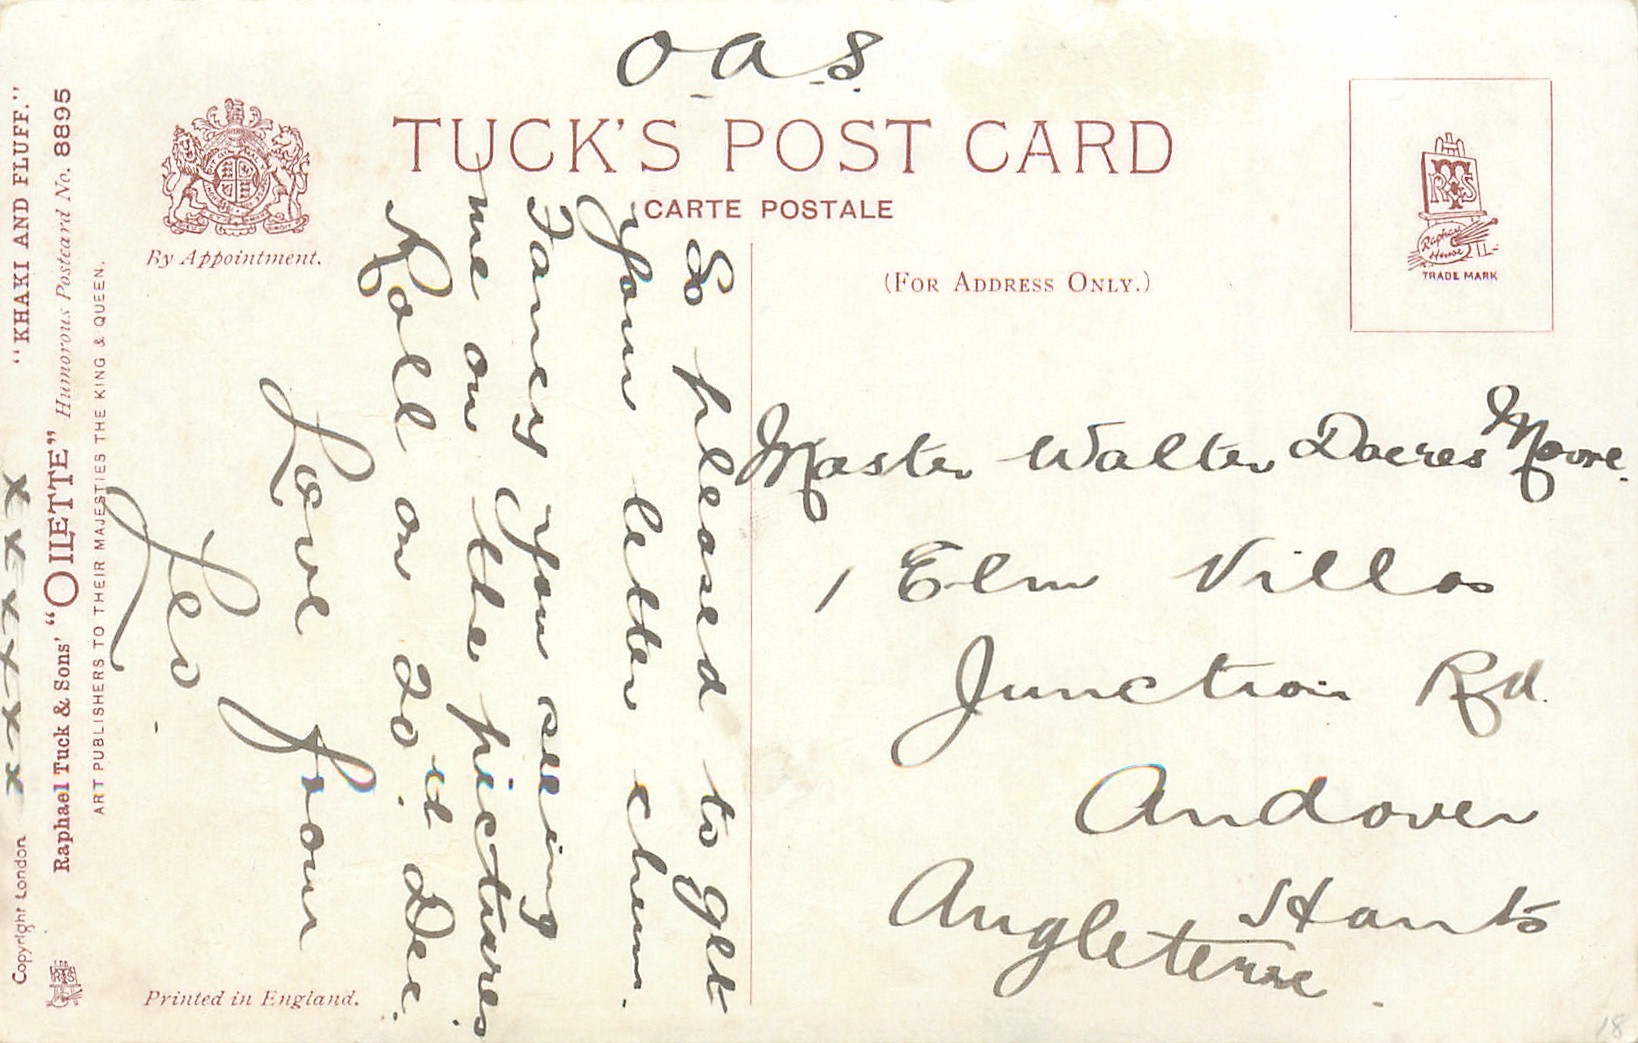 O.A.S.
TUCK'S POST CARD
CARTE POSTALE
(FOR ADDRESS ONLY.)
By Appointment.
TRADE MARK
Raphael
House
So pleased to get
your letter chum.
Fancy you seeing
me on the pictures.
Roll on 20th Dec.
Love from
Leo.
x x x x x x x
Master Walter Dacres Moore.
1 Elm Villas
Junction Rd.
Andover
Hants
Angleterre.
"KHAKI AND FLUFF."
Raphael Tuck & Sons' "OILETTE" Humorous Postcard No. 8895
ART PUBLISHERS TO THEIR MAJESTIES THE KING & QUEEN.
Copyright London
Printed in England.
18